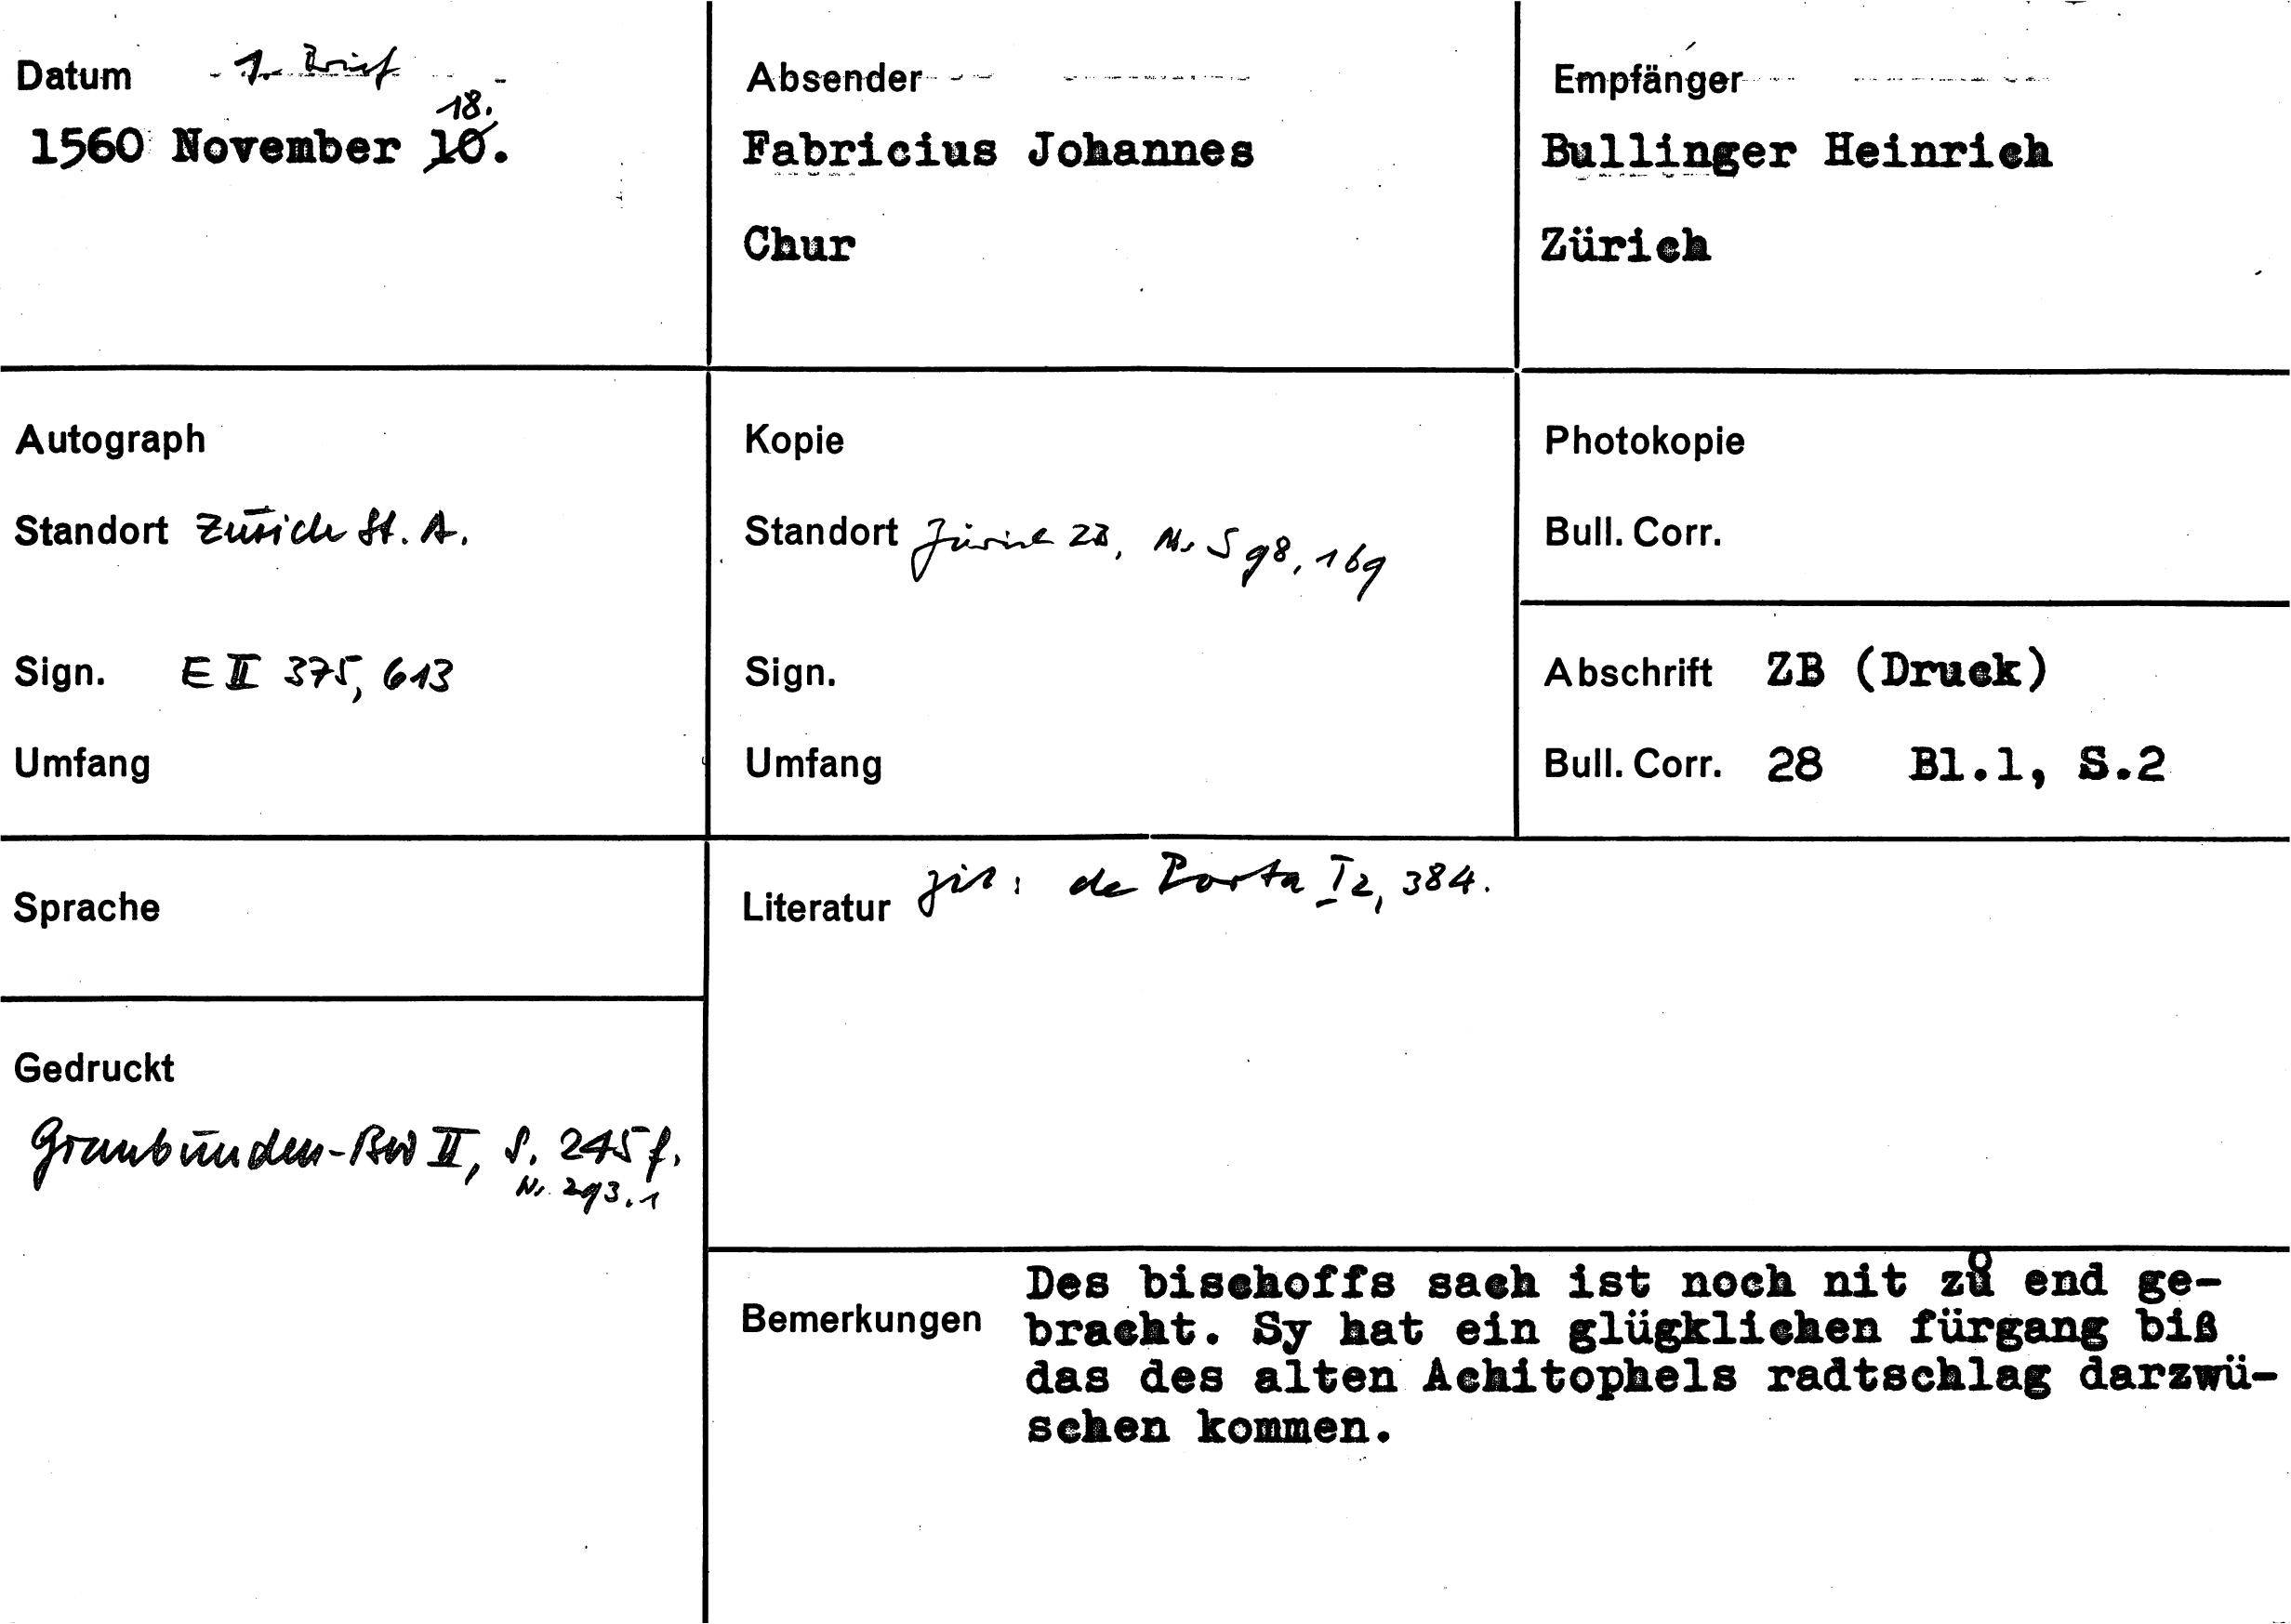 Datum 1. Brief
18.
1560 November 10.
Absender
Fabricius Johannes
Chur
Empfänger
Bullinger Heinrich
Zürich
Autograph
Standort Zürich St. A.
Sign. E II 375, 613
Umfang
Kopie
Standort Zürich ZB, Ms S 98, 169
Sign.
Umfang
Photokopie
Bull. Corr.
Abschrift ZB (Druck)
Bull. Corr. 28 Bl.1, S.2
Sprache
Gedruckt
Graubünden-BW II, S. 245 f.
Nr. 293.1
Literatur zit: de Porta I2, 384.
Bemerkungen
Des bischoffs sach ist noch nit zů end ge-
bracht. Sy hat ein glügklichen fürgang biß
das des alten Achitophels radtschlag darzwü-
schen kommen.